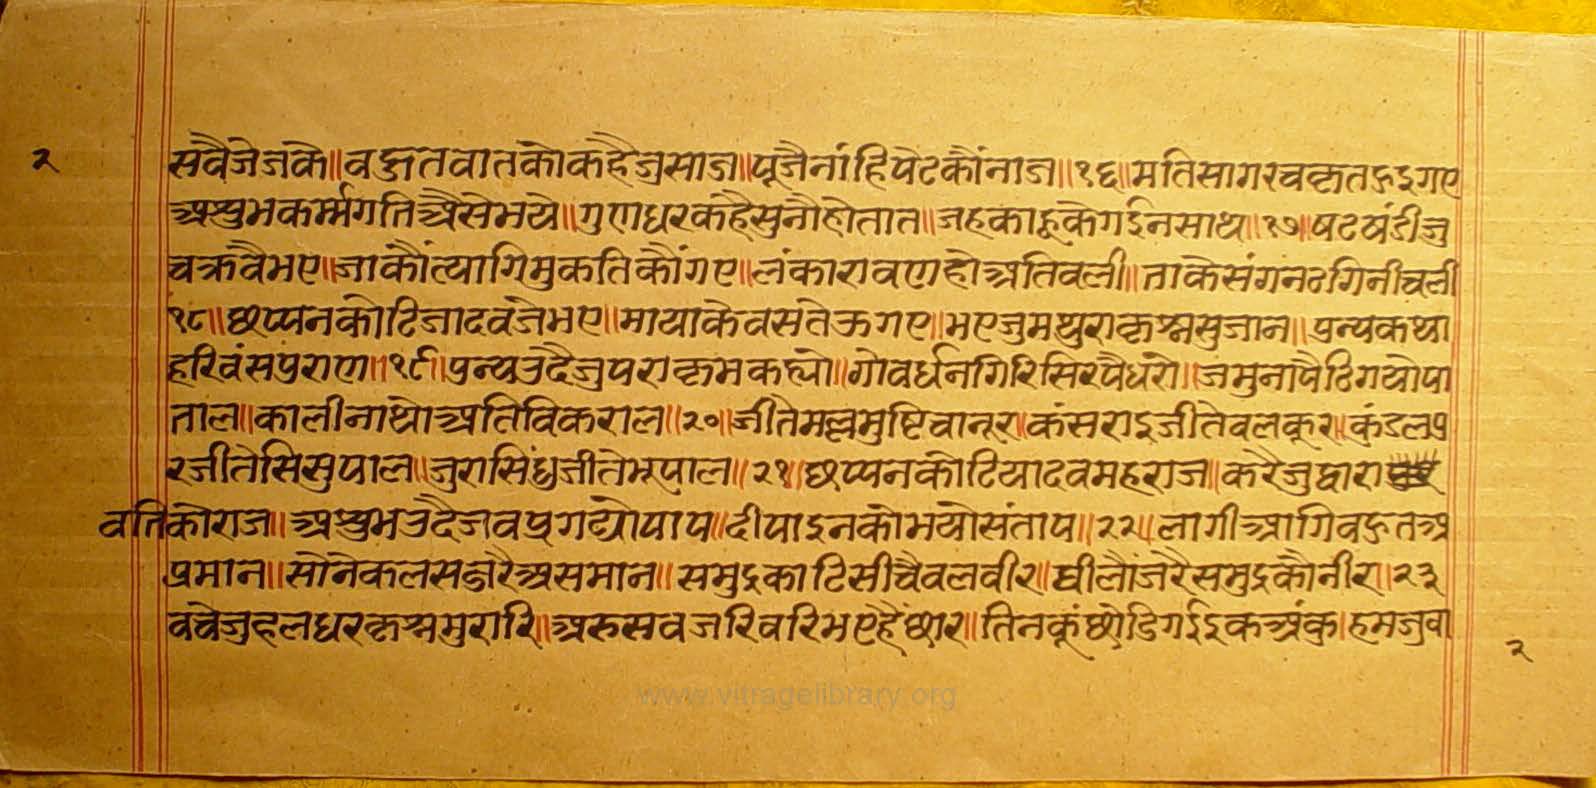 २
सवैजेजके॥वहुतवातकोकहैजुसाज॥पूजैनांहिपेटकौंनाज॥१६॥मतिसागरचकृतहुइगए
अशुभकर्म्मगतिअैसेभये॥गुणधरकहैसुनौहोतात॥जहकाहूकेगईनसाथ॥१७॥षटषंडीजु
चक्रवैभए॥जाकौंत्यागिमुकतिकौंगए॥लंकारावणहोअतिवली॥ताकेसंगनठगिनीचली
१८॥छप्पनकोटिजादवजेभए॥मायाकेवसतेऊगए॥भएजुमथुराकृश्नसुजान॥पुन्यकथा
हरिवंसपुराण॥१९॥पुन्यउदैजुपराकृमकह्यो॥गोवर्धनगिरिसिरपैधरो॥जमुनापैठिगयोपा
ताल॥कालीनाथोअतिविकराल॥२०॥जीतेमल्लमुष्टिचानूर॥कंसराइजीतेवलकूर॥कंडलपु
रजीतेसिसुपाल॥जुरासिंधुजीतेभूपाल॥२१॥छप्पनकोटियादवमहराज॥करैजुद्वारा
वतिकोराज॥अशुभउदैजवप्रगट्योपाप॥दीपाइनकोभयोसंताप॥२२॥लागीआगिवहुतअ
प्रमान॥सोनेकलसजुरैअसमान॥समुद्रकाटिसीचैवलवीर॥घीलौंजरैसमुद्रकौनीर॥२३
वचेजुहलधरकृश्नमुरारि॥अरुसवजरिवरिभएहैंछार॥तिनकूंछोडिगईइकअंक॥हमजुवा
२
www.vitragelibrary.org